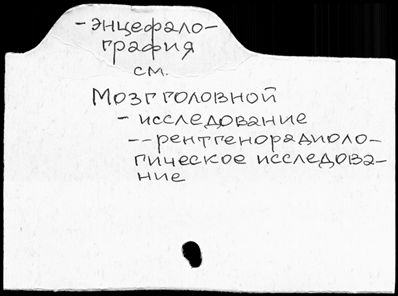 -энцефало-
графия
см.
Мозг головной
- исследование
-- рентгенорадиоло-
гическое исследова-
ние